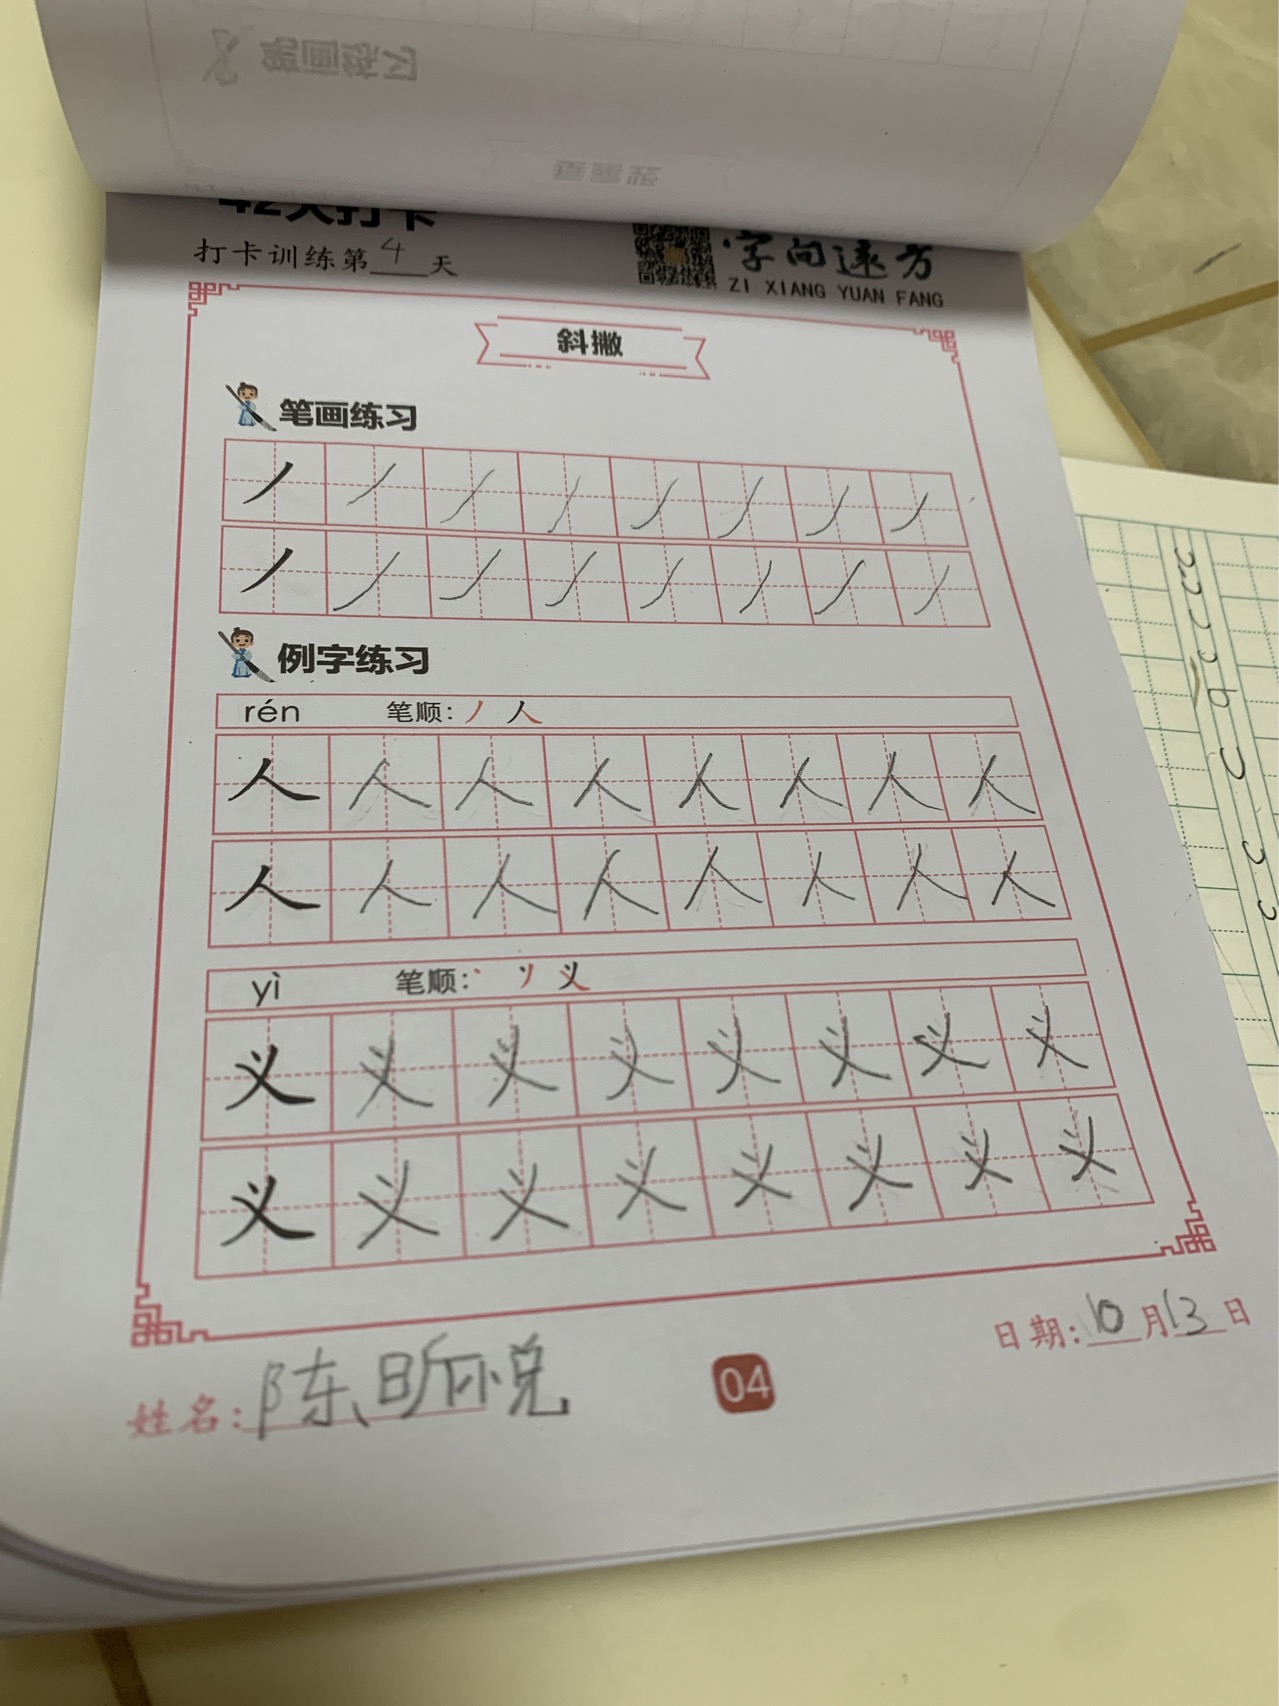 42天打卡
打卡训练第4天
字向远方
ZI XIANG YUAN FANG
斜撇
笔画练习
丿 丿 丿 丿 丿 丿 丿 丿
丿 丿 丿 丿 丿 丿 丿 丿
例字练习
rén 笔顺: 丿 人
人 人 人 人 人 人 人 人
人 人 人 人 人 人 人 人
yì 笔顺: 丶 丷 义
义 义 义 义 义 义 义 义
义 义 义 义 义 义 义 义
日期: 10月13日
姓名: 陈昕悦
04